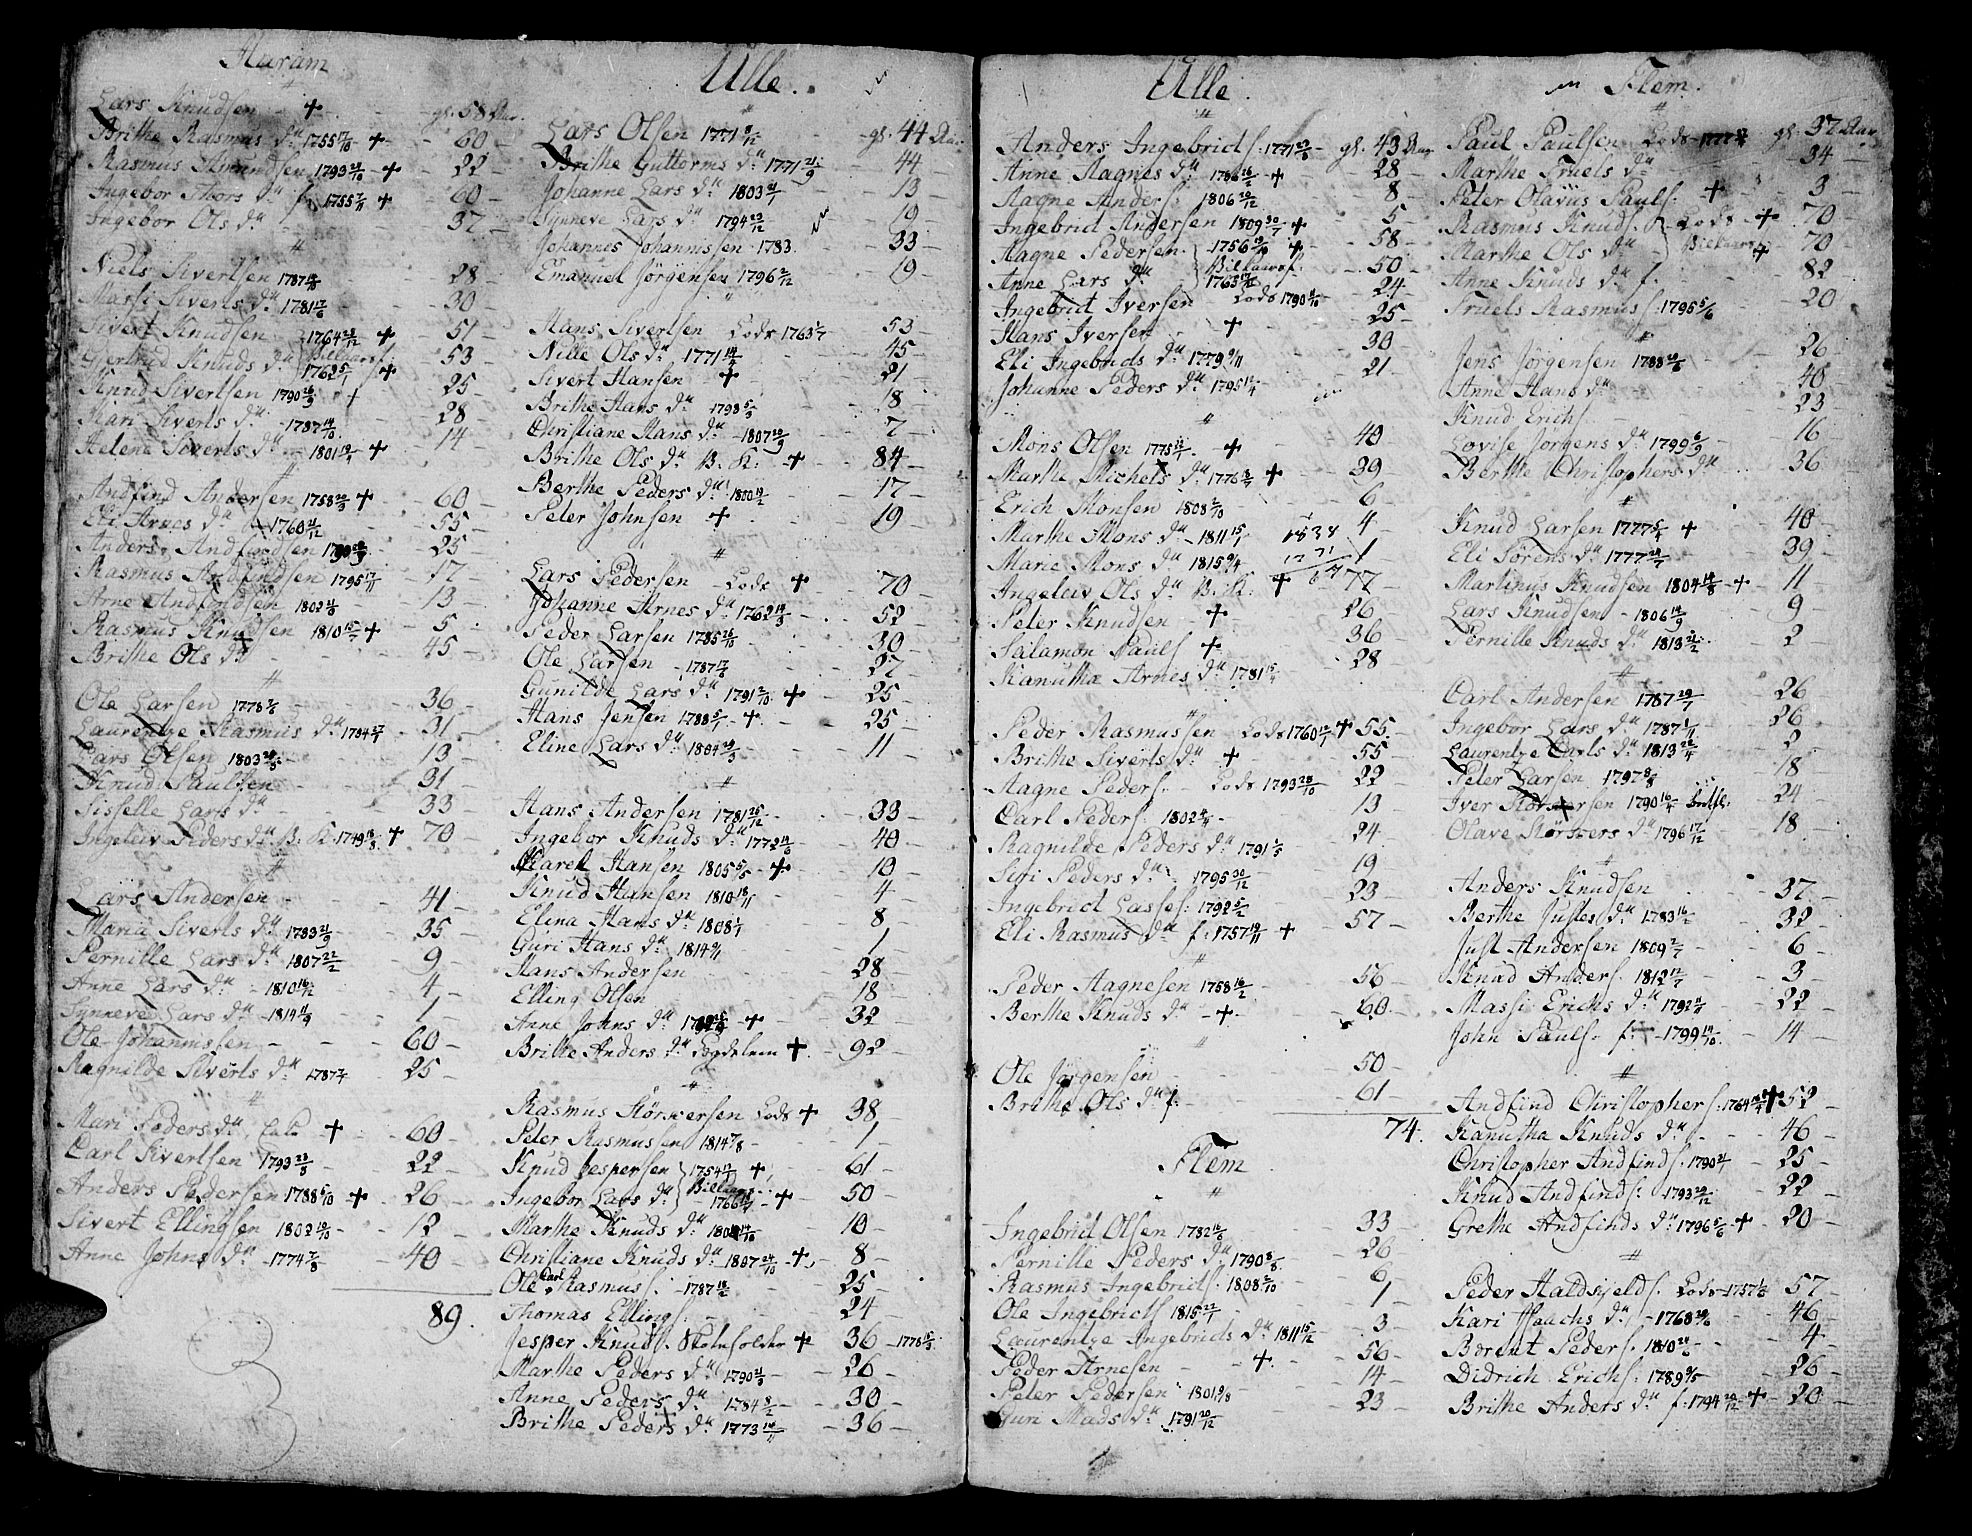 Haram
Lars Knudsen + gl. 58 Aar
Brithe Rasmus d. 1755 17/10 + 60
Rasmus Amundsen 1793 21/10 + 22
Ingebor Thors d. f. 1755 7/11 + 60
Ingebor Ols d. 37
Niels Sivertsen 1787 28
Massi Siverts d. 1781 17/6 30
Sivert Knudsen 1764 28/12 + 51
Gjertrud Knuds d. 1762 5/1 + 53
Knud Sivertsen 1790 16/9 + 25
Kari Siverts d. 1787 14/10 28
Helene Siverts d. 1801 19/4 + 14
Andfind Andersen 1758 20/3 + 60
Eli Arnes d. 1760 21/12 55
Anders Andfindsen 25
Rasmus Andfindsen 1795 17/11 17
Arne Andfindsen 1802 13
Rasmus Knudsen 1810 15/7 + 5
Brithe Ols d. 45
Ole Larsen 1778 36
Laurentze Rasmus d. 1784 27/7 31
Lars Olsen 1803 13
Knud Paulsen 31
Sisselle Lars d. 33
Ingeleiv Peders d. B. K. 1749 18/8 + 70
Lars Andersen 41
Maria Siverts d. 1783 21/9 35
Pernille Lars d. 1807 22/2 9
Anne Lars d. 1810 16/12 4
Synneve Lars d. 1814 11/9 1
Ole Johannissen 60
Ragnilde Siverts d. 1787 25
Mari Peders d. + 60
Carl Sivertsen 1793 23/8 22
Anders Pedersen 1788 5/10 + 26
Sivert Ellingsen 1802 19/10 12
Anne Johns d. 1774 7/8 40
89.
Ulle.
Lars Olsen 1771 8/12 gl. 44 Aar
Brithe Guttorms d. 1771 21/9 44
Johanne Lars d. 1803 21/7 13
Synneve Lars d. 1794 23/12 19
Johannes Johannissen 1783 33
Emanuel Jörgensen 1796 2/12 19
Hans Sivertsen Lods 1763 1/7 53
Nille Ols d. 1771 45
Sivert Hansen + 21
Brithe Hans d. 1798 5/3 18
Christiane Hans d. 1807 20/9 7
Brithe Ols d. B. K. + 84
Berthe Peders d. 1800 19/2 17
Peter Johnsen + 19
Lars Pedersen Lods + 70
Johanne Arnes d. 1762 14/3 52
Peder Larsen 1785 26/10 30
Ole Larsen 1787 17/6 27
Gunilde Lars d. 1791 2/10 + 25
Hans Jensen 1788 5/1 + 25
Eline Lars d. 1804 20/3 11
Hans Andersen 1781 26/12 33
Ingebor Knuds d. 1772 14/6 40
Karel Hansen 1805 5/5 + 10
Knud Hansen 1810 18/11 4
Elina Hans d. 1808 1/1 8
Guri Hans d. 1814 9/11 1
Hans Andersen 28
Elling Olsen 18
Anne Johns d. + 32
Brithe Anders d. Lægdelem + 92
Rasmus Störkersen Lods + 38
Peter Rasmussen 1814 7/8 1
Knud Jespersen 1754 17/7 + 61
Ingebor Lars d. 1766 + 50
Marthe Knuds d. 10
Christiane Knuds d. 1807 24/10 + 8
Ole Carl Rasmus s. 1787 18/12 25
Thomas Ellings. 24
Jesper Knuds. Skoleholder + 36 1778 15/3
Marthe Peders d. 1790 21/3 26
Anne Peders d. 1784 8/2 30
Brithe Peders d. 1773 14/11 36
Ulle.
Anders Ingebrids. 1771 23/6 gl. 43 Aar
Anne Aagnes d. 1786 16/2 + 28
Aagne Anders. 1806 20/12 8
Ingebrid Andersen 1809 30/7 + 5
Aagne Pedersen 1756 19/10 + 58
Anne Lars d. 1765 17/12 50
Ingebrid Iversen Lods 1790 8/10 24
Hans Iversen + 25
Eli Ingebrids d. 1779 9/11 30
Johanne Peders d. 1795 17/4 21
Mons Olsen 1775 12/7 + 40
Marthe Michels d. 1776 2/7 + 39
Erich Monsen 1808 2/10 6
Marthe Mons d. 1811 15/1 4
1838
1771
67
Marie Mons d. 1815 9/4 1
Ingeleiv Ols d. B. K. + 77
Peter Knudsen + 26
Salamon Pauls. + 36
Kanutha Arnes d. 1781 15/4 28
Peder Rasmussen Lods 1760 12/7 + 55
Brithe Siverts d. + 55
Aagne Peders. Lods 1793 28/10 22
Carl Peders. 1802 13
Ragnilde Peders d. 1791 1/5 24
Siri Peders d. 1795 30/12 19
Ingebrid Lasses. 1792 5/2 23
Eli Rasmus d. f. 1757 19/11 + 57
Peder Aagnesen 1758 16/2 56
Berthe Knuds d. + 60
Ole Jörgensen 50
Brithe Ols d. f. 61
74.
Flem
Ingebrid Olsen 1782 16/6 33
Pernille Peders d. 1790 8/8 26
Rasmus Ingebrids. 1808 2/10 6
Ole Ingebrids. 1815 22/1 1
Laurentze Ingebrids d. 1811 15/12 3
Peder Arnesen + 56
Peter Pedersen 1801 9/8 14
Guri Mads d. 1791 20/12 23
Flem.
Paul Paulsen Lods 1777 gl. 37 Aar
Marthe Truels d. 34
Peter Olavus Pauls. + 3
Rasmus Knuds. Lods + 70
Marthe Ols d. + 70
Anne Knuds d. f. 82
Truels Rasmus s. 1795 5/6 20
Jens Jörgensen 1788 26
Anne Hans d. 40
Knud Erichs. 23
Lovise Jörgens d. 1799 6/9 16
Berthe Christophers d. 36
Knud Larsen 1777 5/4 + 40
Eli Sörens d. 1777 24/7 39
Martinus Knudsen 1804 14/8 + 11
Lars Knudsen 1806 14/9 9
Pernille Knuds d. 1813 21/2 2
Carl Andersen 1787 29/7 26
Ingebor Lars d. 1787 1/11 26
Laurentze Carls d. 1813 20/4 2
Peter Larsen 1797 8/8 18
Iver Störkersen 1790 16/4 24
Olave Störkers d. 1796 17/12 18
Anders Knudsen 37
Berthe Justes d. 1783 16/2 32
Just Andersen 1809 2/7 6
Knud Anders. 1812 17/7 3
Massi Erichs d. 1792 22
John Pauls. f. 1799 14/10 14
Andfind Christophers. 1764 + 52
Kanutha Knuds d. 46
Christopher Andfinds. 1790 21/1 25
Knud Andfinds. 1793 20/12 22
Grethe Andfinds d. 1796 5/6 + 20
Peder Haldsjelds. Lods 1757 57
Kari Isaachs d. 1768 20/6 46
Berent Peders. 1810 24/2 4
Didrich Erichs. 1789 9/5 26
Brithe Anders d. f. 1794 20/12 + 20